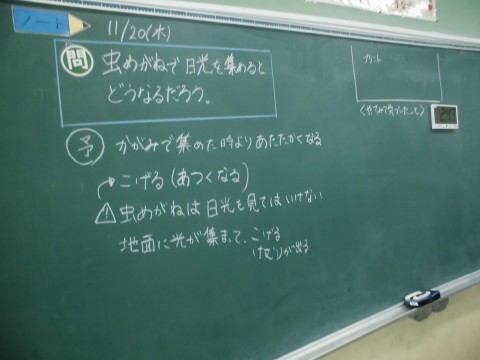 ノート
11/20(木)
問 虫めがねで日光を集めると
どうなるだろう。
予 かがみで集めた時よりあたたかくなる
こげる(あつくなる)
虫めがねは日光を見てはいけない
地面に光が集まって、こげる
けむりが出る
プリント